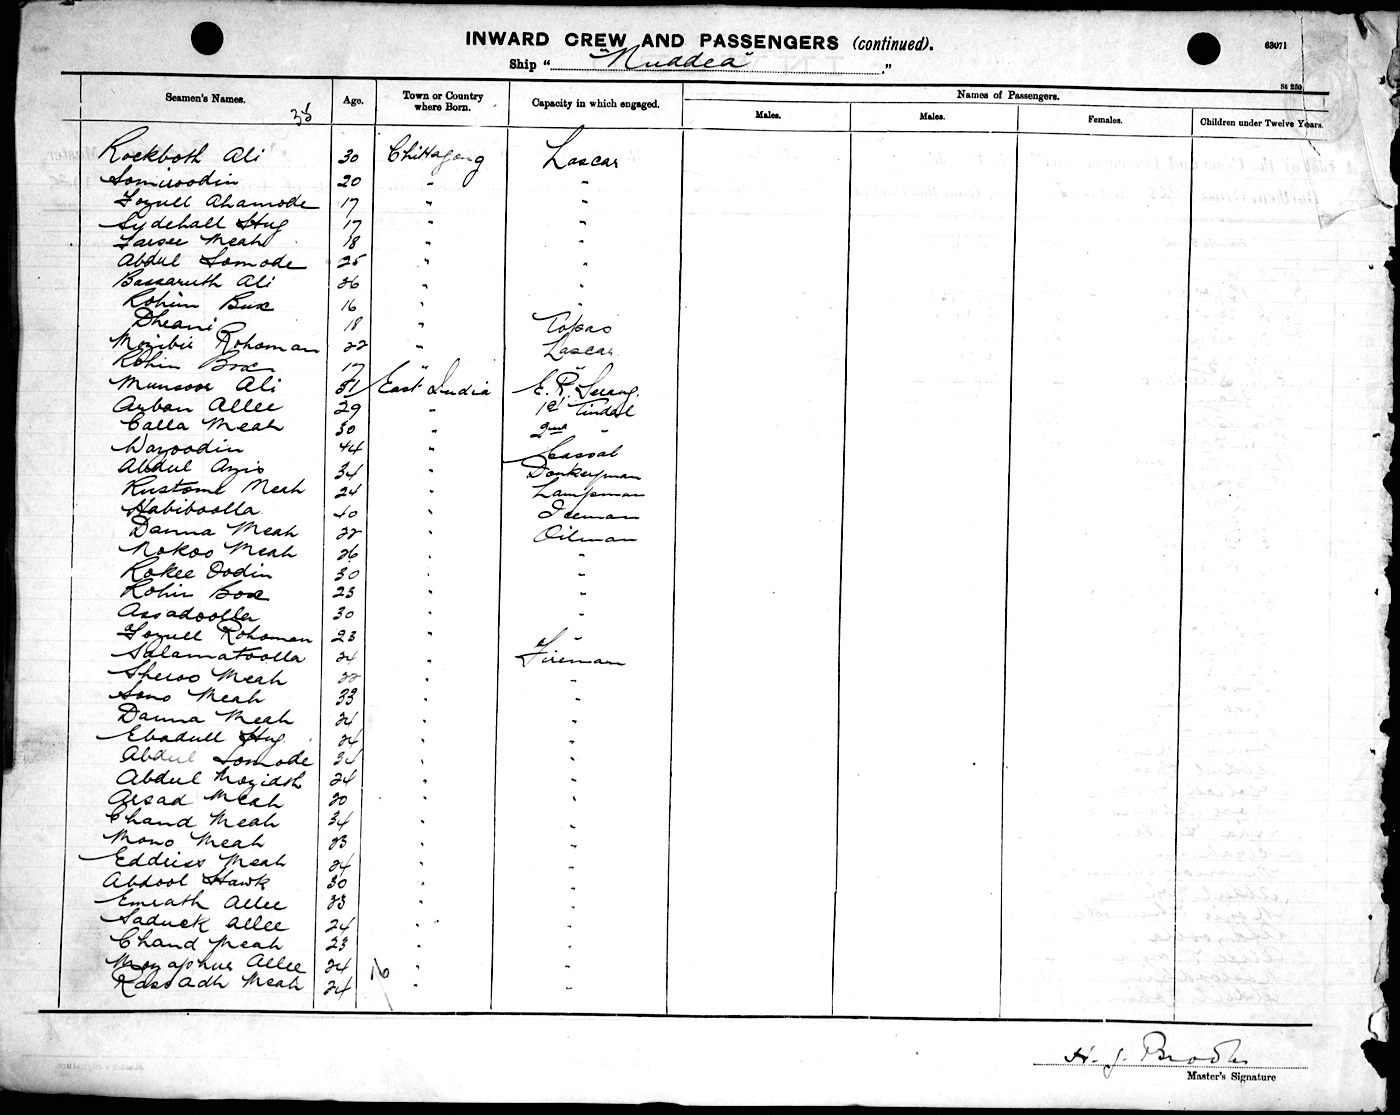 INWARD CREW AND PASSENGERS (continued).
63071
Ship "Nuddea"
St 250
Seamen's Names. Age. Town or Country where Born. Capacity in which engaged. Names of Passengers.
Males. Males. Females. Children under Twelve Years.
35
Rockboth Ali 30 Chittagong Lascar
Somiroodin 20 " "
Fozull Ahamode 17 " "
Sydehall Huq 17 " "
Farsee Meah 18 " "
Abdul Somode 25 " "
Bassaruth Ali 26 " "
Rohim Bux 16 " "
Dheani 18 " Topas
Mozibir Rohoman 22 " Lascar
Rohin Box 17 " "
Munsoor Ali 51 East India E. R. Serang.
Arban Allee 29 " 1st Tindal
Calla Meah 30 " 2nd "
Wazoodin 44 " Cassab
Abdul Azis 34 " Donkeyman
Rustome Meah 24 " Lampman
Habiboolla 40 " Iceman
Danna Meah 22 " Oilman
Nokoo Meah 26 " "
Rokee Oodin 30 " "
Rohin Box 23 " "
Assadoolla 30 " "
Fozull Rohoman 23 " "
Salamatoolla 24 " Fireman
Sheroo Meah 22 " "
Sono Meah 33 " "
Danna Meah 24 " "
Ebadull Huq 24 " "
Abdul Somode 34 " "
Abdul Mozidth 24 " "
Arsad Meah 20 " "
Chand Meah 34 " "
Mono Meah 23 " "
Eddriss Meah 24 " "
Abdool Hawk 30 " "
Emrath Allee 33 " "
Saduck Allee 24 " "
Chand Meah 23 " "
Mozaphur Allee 24 " "
Rassadh Meah 24 " "
76
H. J.
Master's Signature